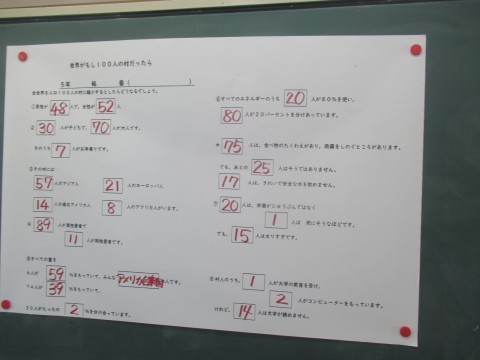 世界がもし100人の村だったら
5年 組 番( )
全世界を人口100人の村に縮小するとしたらどうなるでしょう。
①男性が 48 人で、女性が 52 人
② 30 人が子どもで、70 人が大人です。
そのうち 7 人がお年寄りです。
③その村には
57 人のアジア人 21 人のヨーロッパ人
14 人の南北アメリカ人 8 人のアフリカ人がいます。
④ 89 人が異性愛者で
11 人が同性愛者です。
⑤すべての富を
6人が 59 %をもっていて、みんな アメリカ合衆国 人です。
74人が 39 %をもっていて、
20人がたったの 2 %を分け合っています。
⑥すべてのエネルギーのうち 20 人が80%を使い、
80 人が20パーセントを分けあっています。
75 人は、食べ物のたくわえがあり、雨露をしのぐところがあります。
でも、あとの 25 人はそうではありません。
17 人は、きれいで安全な水を飲めません。
⑦ 20 人は、栄養がじゅうぶんではなく
1 人は 死にそうなほどです。
でも、15 人は太りすぎです。
⑧村人のうち、1 人が大学の教育を受け、
2 人がコンピューターをもっています。
けれど、14 人は文字が読めません。